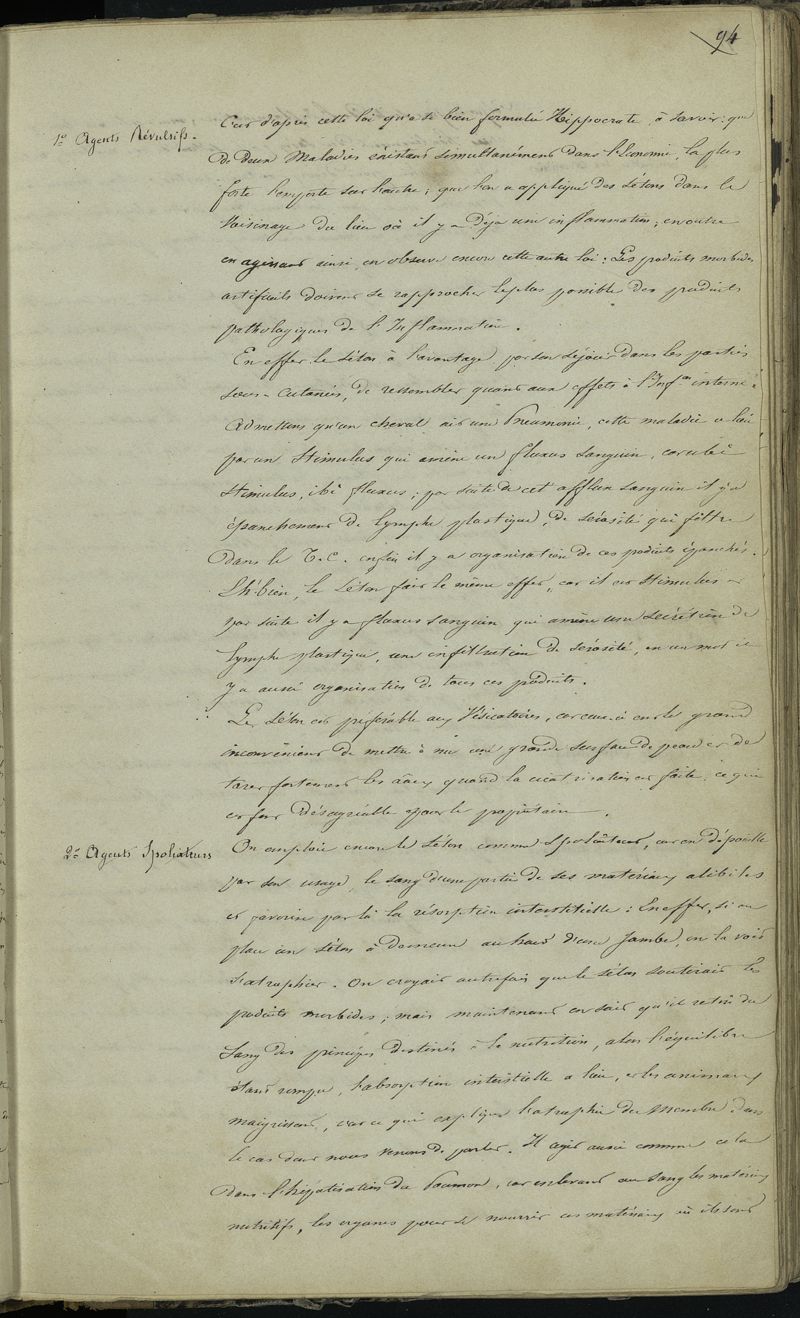 94
1º Agents Révulsifs.
Car d'après cette loi qu'a si bien formulée Hippocrate, à savoir: que
de deux Maladies existant simultanément dans l'Economie, la plus
forte l'emporte sur l'autre; que l'on a appliqué des sétons dans le
Voisinage du lieu où il y a déjà une inflammation; en outre
en agissant ainsi, on observe encore cette autre loi: Les produits morbides
artificiels doivent se rapprocher le plus possible des produits
pathologiques de l'Inflammation.
En effet le Séton à l'avantage, par son séjour dans les parties
sous-cutanées, de ressembler quant aux effets à l'Inf.on interne.
Admettons qu'un cheval ait une Pneumonie, cette maladie a lieu
par un Stimulus qui amène un fluxus sanguin, car ubi
stimulus, ibi fluxus; par suite de cet afflux sanguin il y a
épanchement de lymphe plastique, de sérosité qui filtre
dans le T.C. enfin il y a organisation de ces produits épanchés.
Eh! bien, le Séton fait le même effet, car il est stimulus et
par suite il y a fluxus sanguin qui amène une sécrétion de
lymphe plastique, une infiltration de sérosité, en un mot il
y a aussi organisation de tous ces produits.
Le Séton est préférable aux Vésicatoires, car ceux-ci ont le grand
inconvénient de mettre à nu une grande surface de peau et de
tarer fortement les anx quand la cicatrisation est faite, ce qui
est fort désagréable pour le propriétaire.
2º Agents Spoliateurs
On emploie encore le Séton comme Spoliateur, car on dépouille
par son usage, le sang d'une partie de ses matériaux alibiles
et favorise par là la résorption interstitielle: En effet, si on
place un Séton à demeure au haut d'une Jambe, on la voit
s'atrophier. On croyait autrefois que le Séton soutirait les
produits morbides; mais maintenant on sait qu'il retire du
Sang des principes destinés à la nutrition, alors l'équilibre
étant rompu, l'absorption interstitielle a lieu, et les animaux
maigrissent, c'est ce qui explique l'atrophie du Membre dans
le cas dont nous venons de parler. Il agit aussi comme cela
dans l'hépatisation du Poumon, car enlevant au sang les matériaux
nutritifs, les organes pour se nourrir ces matériaux où ils sont